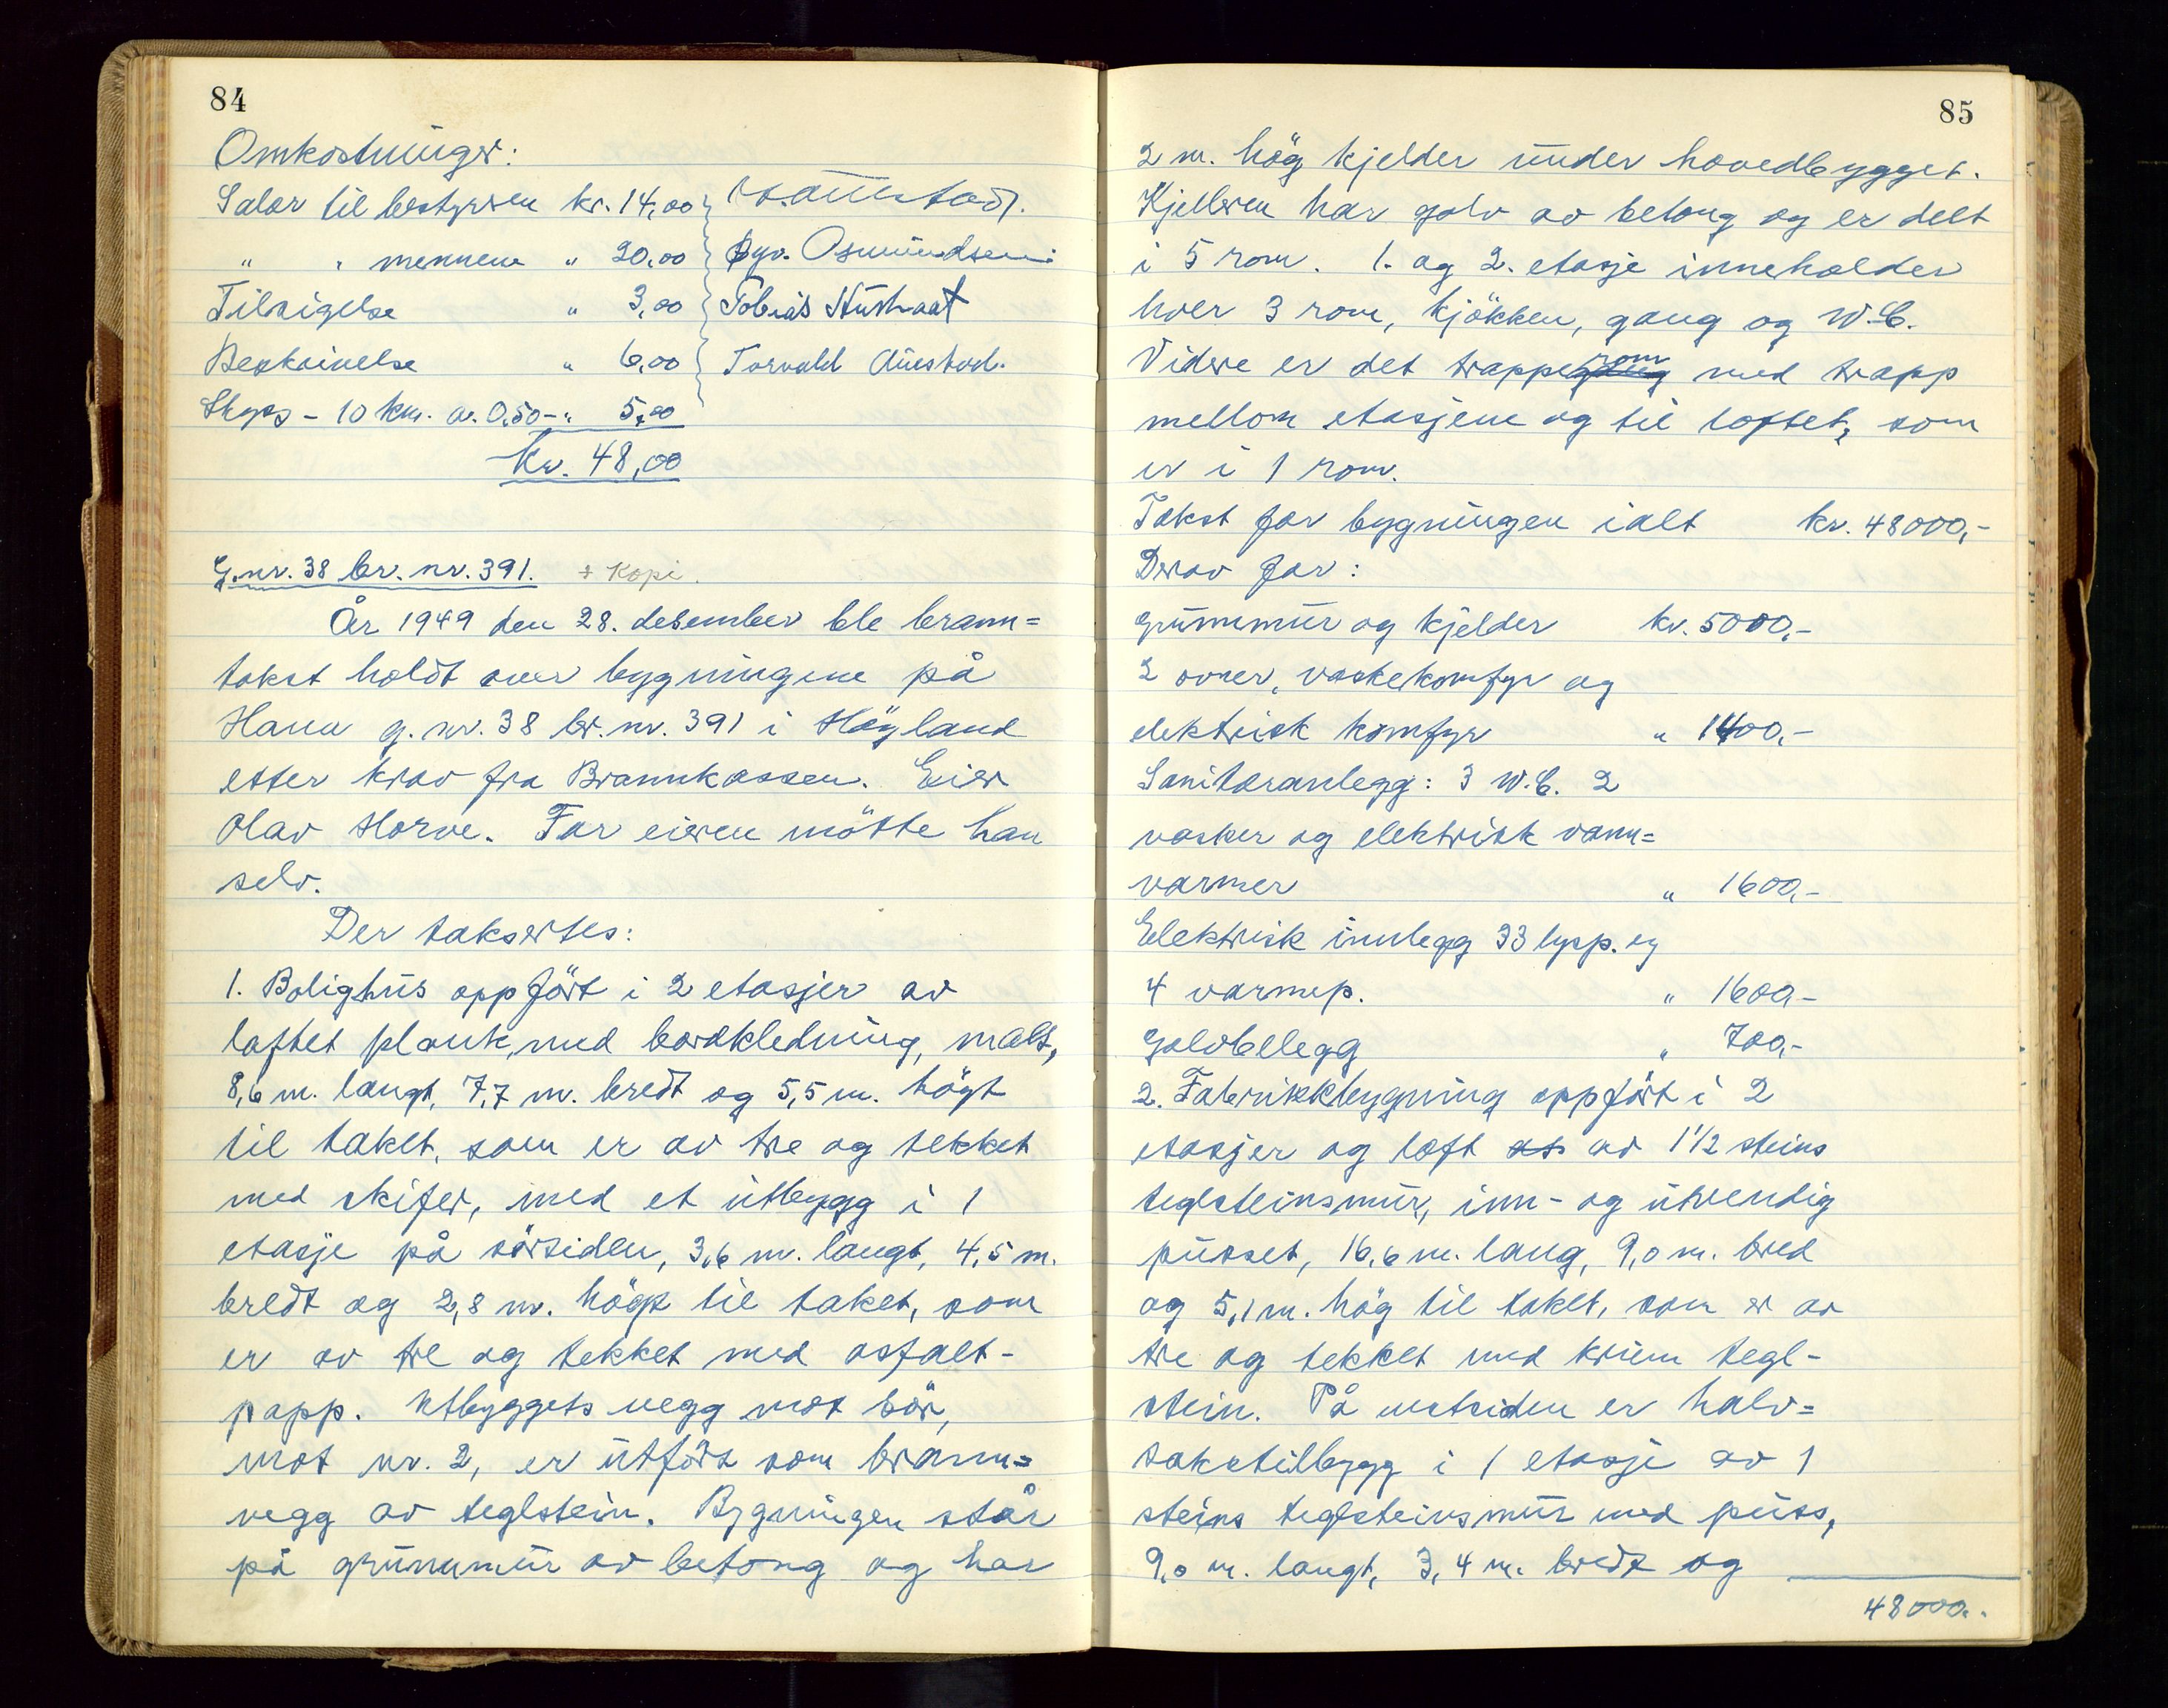 84
Omkostninger:
Salær til bestyreren kr. 14,00
" " mennene " 20,00 Øyv. Osmundsen
Tilsigelse " 3,00 Tobias
Beskrivelse " 6,00 Torvald Auestad.
Skyss - 10 km. a. 0,50 - " 5,00
kr. 48,00
G.nr. 38 br. nr. 391. + Kopi.
År 1949 den 28. desember ble brann=
takst holdt over bygningene på
Hana g. nr. 38 br. nr. 391 i Høyland
etter krav fra Brannkassen. Eier
Olav Horve. For eieren mötte han
selv.
Der taksertes:
1. Bolighus oppfört i 2 etasjer av
laftet plank, med bordkledning, malt,
8,6 m. langt, 7,7 m. bredt og 5,5 m. högt
til taket, som er av tre og tekket
med skifer, med et utbygg i 1
etasje på sörsiden, 3,6 m. langt, 4,5 m.
bredt og 2,8 m. högt til taket, som
er av tre og tekket med asfalt-
papp. Utbyggets vegg mot sör,
mot nr. 2, er utfört som brann=
vegg av teglstein. Bygningen står
på grunnmur av betong og har
85
2 m. hög kjelder under hovedbygget.
Kjelleren har golv av betong og er delt
i 5 rom. 1. og 2. etasje inneholder
hver 3 rom, kjökken, gang og W.C.
Videre er det trapperom med trapp
mellom etasjene og til loftet, som
er i 1 rom.
Takst for bygningen ialt kr. 48000,-
Derav for:
grunnmur og kjelder kr. 5000,-
2 ovner, vaskekomfyr og
elektrisk komfyr " 1400,-
Sanitæranlegg: 3 W.C. 2
vasker og elektrisk vann=
varmer " 1600,-
Elektrisk innlegg 33 lysp. og
4 varmep. " 1600,-
golvbelegg " 700,-
2. Fabrikkbygning oppfört i 2
etasjer og loft av 1 1/2 steins
teglsteinsmur, inn- og utvendig
pusset, 16,6 m. lang, 9,0 m. bred
og 5,1 m. hög til taket, som er av
tre og tekket med krum tegl-
stein. På vestsiden er halv=
takstilbygg i 1 etasje av 1
steins teglsteinsmur med puss,
9,0 m. langt, 3,4 m. bredt og
48000,-